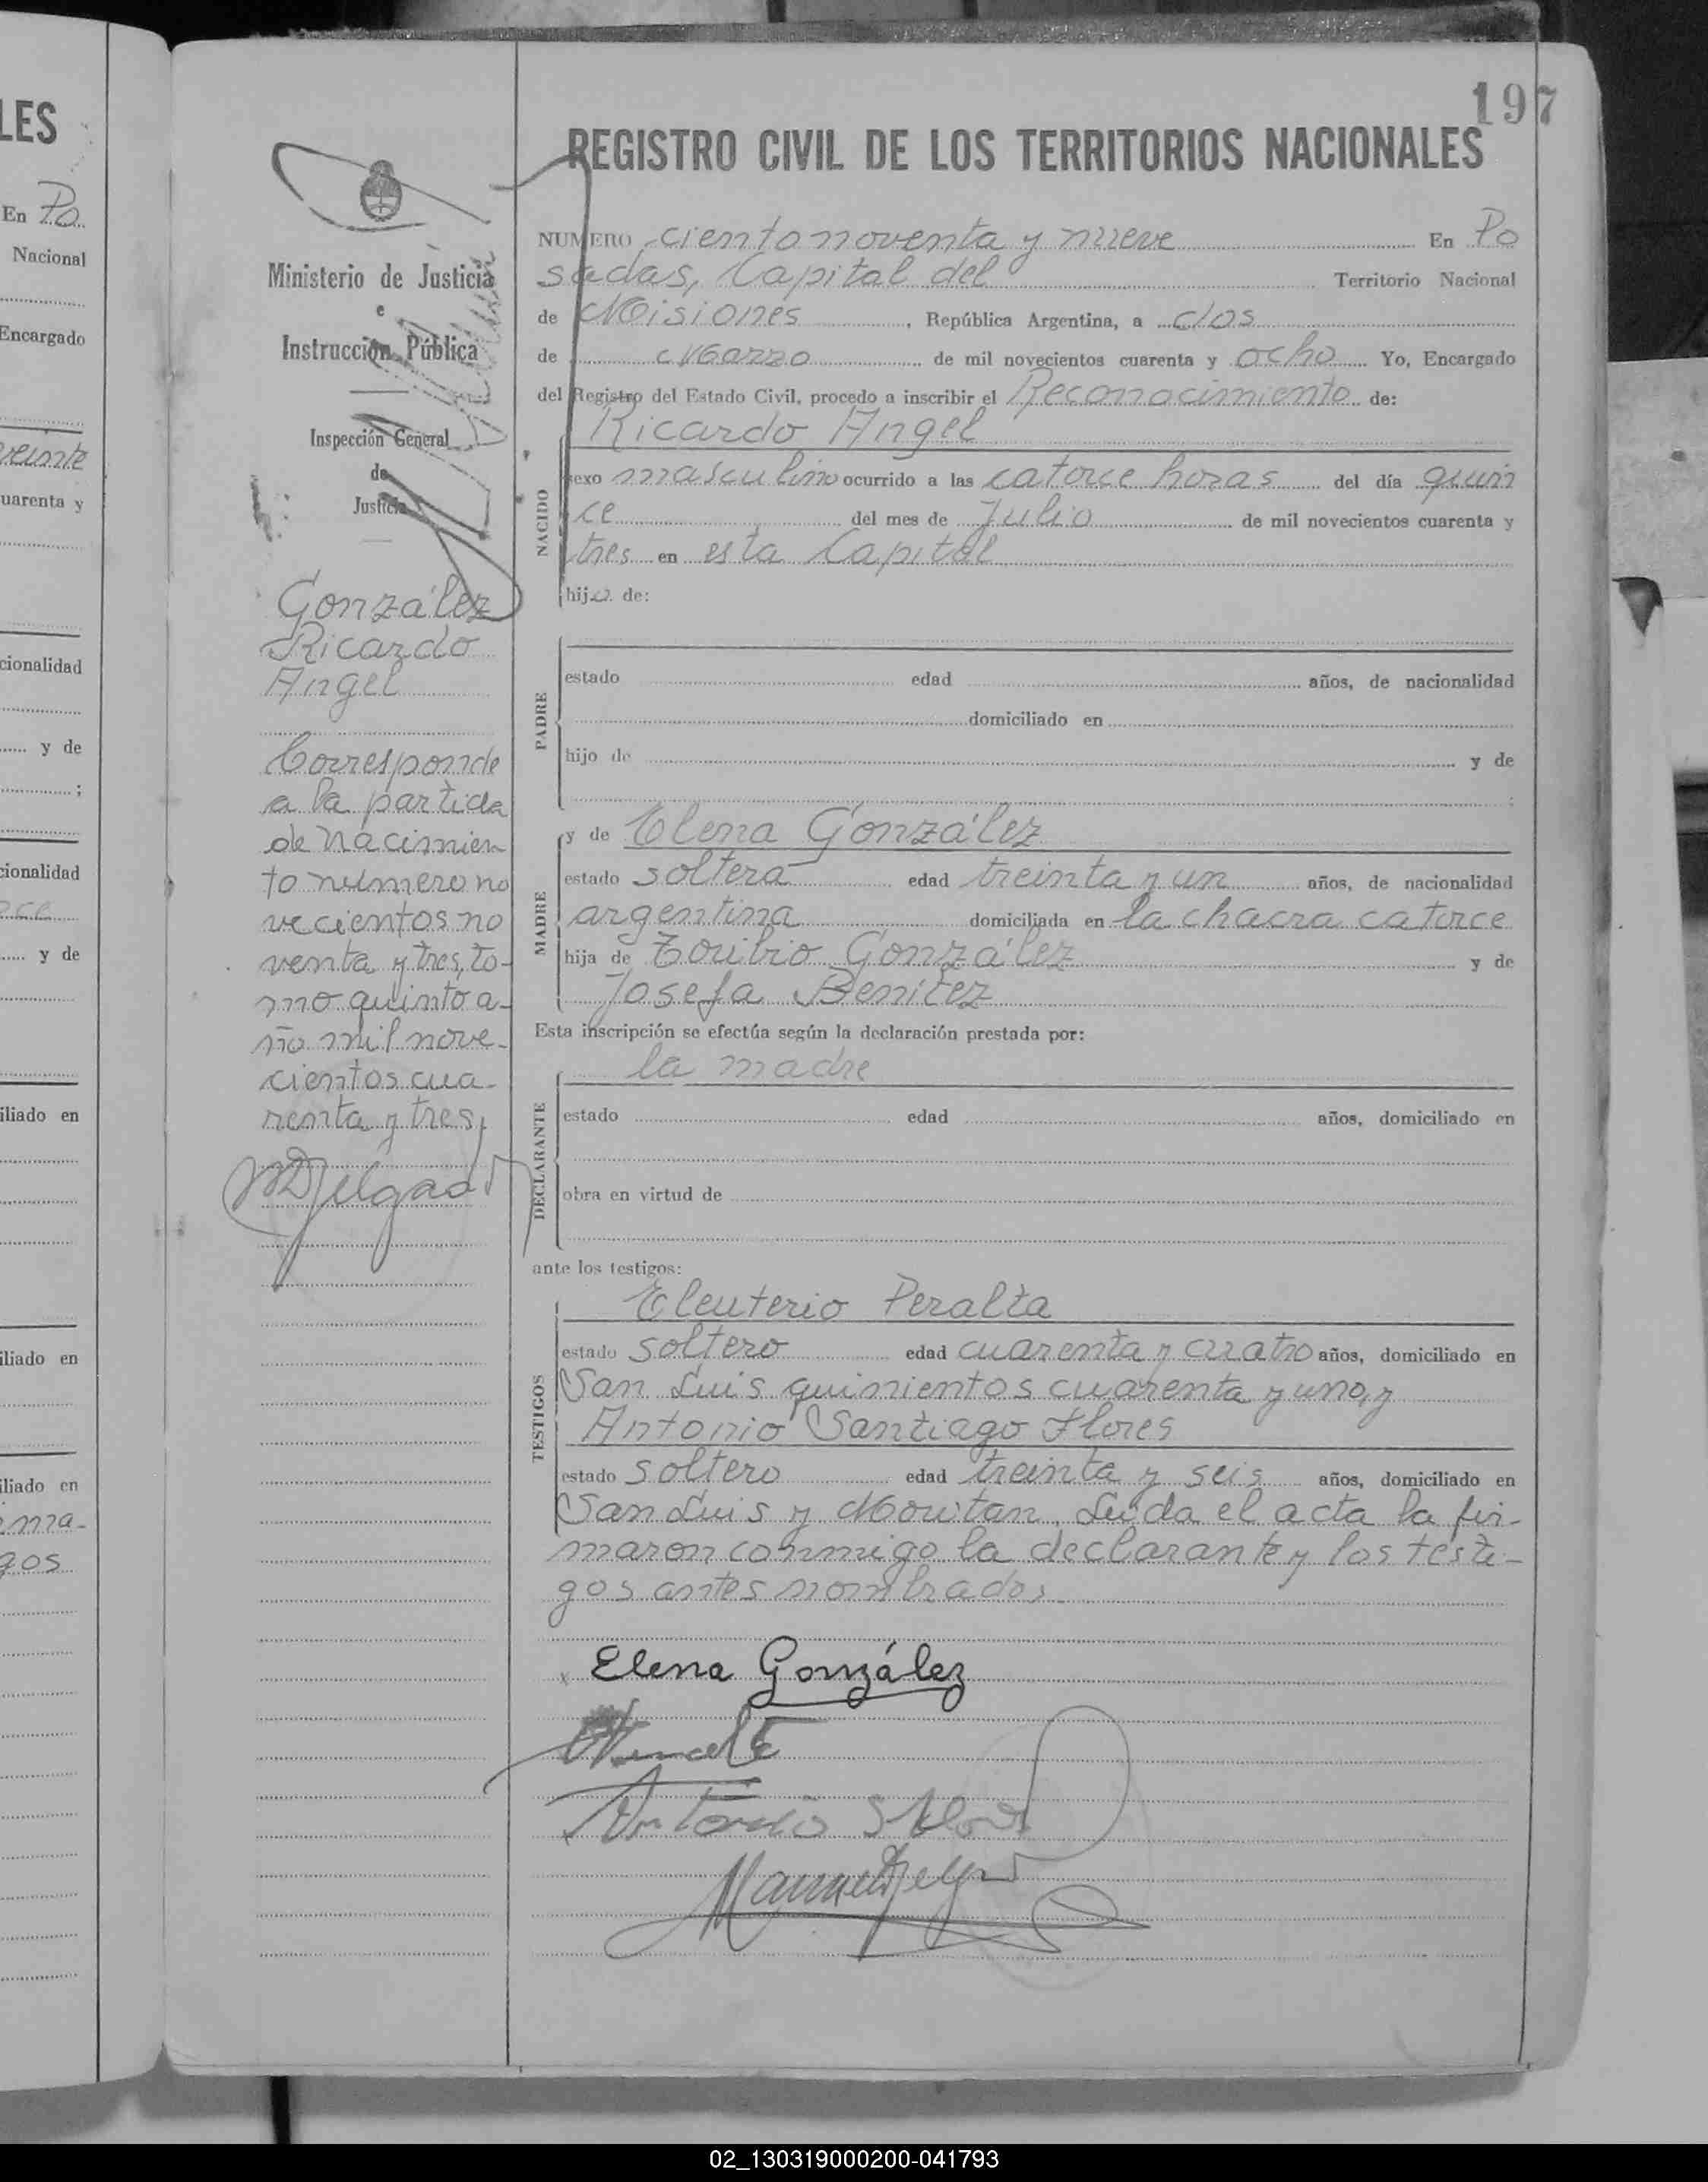 LES
En Po
Nacional
Encargado
veinte
cuarenta y
cionalidad
y de
;
cionalidad
y de
iliado en
iliado en
iliado en
ma-
gos
197
REGISTRO CIVIL DE LOS TERRITORIOS NACIONALES
Ministerio de Justicia
e
Instrucción Pública
Inspección General
de
Justicia
González
Ricardo
Angel
Corresponde
a la partida
de nacimien
to número no
vecientos no
venta y tres, to-
mo quinto a-
ño mil nove-
cientos cua-
renta y tres,
NUMERO ciento noventa y nueve En Po
sadas, Capital del Territorio Nacional
de Misiones, República Argentina, a dos
de Marzo de mil novecientos cuarenta y ocho Yo, Encargado
del Registro del Estado Civil, procedo a inscribir el Reconocimiento de:
NACIDO
Ricardo Angel
sexo masculino ocurrido a las catorce horas del día quin
ce del mes de Julio de mil novecientos cuarenta y
tres en esta Capital
hijo de:
PADRE
estado edad años, de nacionalidad
domiciliado en
hijo de y de
;
MADRE
y de Elena González
estado soltera edad treinta y un años, de nacionalidad
argentina domiciliada en la chacra catorce
hija de Toribio González y de
Josefa Benítez
Esta inscripción se efectúa según la declaración prestada por:
DECLARANTE
la madre
estado edad años, domiciliado en
obra en virtud de
ante los testigos:
TESTIGOS
Eleuterio Peralta
estado soltero edad cuarenta y cuatro años, domiciliado en
San Luis quinientos cuarenta y uno, y
Antonio Santiago Flores
estado soltero edad treinta y seis años, domiciliado en
San Luis y Moritan. Leída el acta la fir-
maron conmigo la declarante y los testi-
gos antes nombrados.
x Elena González
Antonio S Flores
02_130319000200-041793